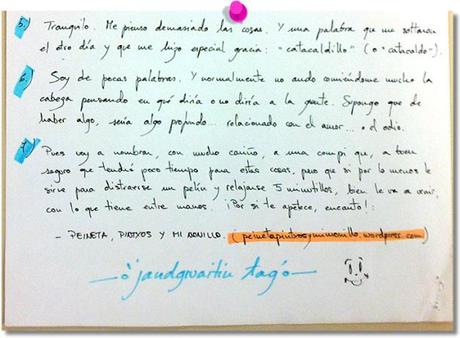 5. Tranquilo. Me pienso demasiado las cosas. Y una palabra que me soltaron
el otro día y que me hizo especial gracia: "catacaldillo" (o "catacaldo").
6. Soy de pocas palabras. Y normalmente no ando comiéndome mucho la
cabeza pensando en qué diría o no diría a la gente. Supongo que de
haber algo, sería algo profundo... relacionado con el amor... o el odio.
7. Pues voy a nombrar, con mucho cariño, a una compi que, a buen
seguro que tendrá poco tiempo para estas cosas, pero que si por lo menos le
sirve para distraerse un pelín y relajarse 5 minutillos, bien le va a venir
con lo que tiene entre manos. ¡Por si te apetece, encanto!:
- PEINETA, PINTXOS Y MI MONILLO. (peinetapintxosymimonillo.wordpress.com)